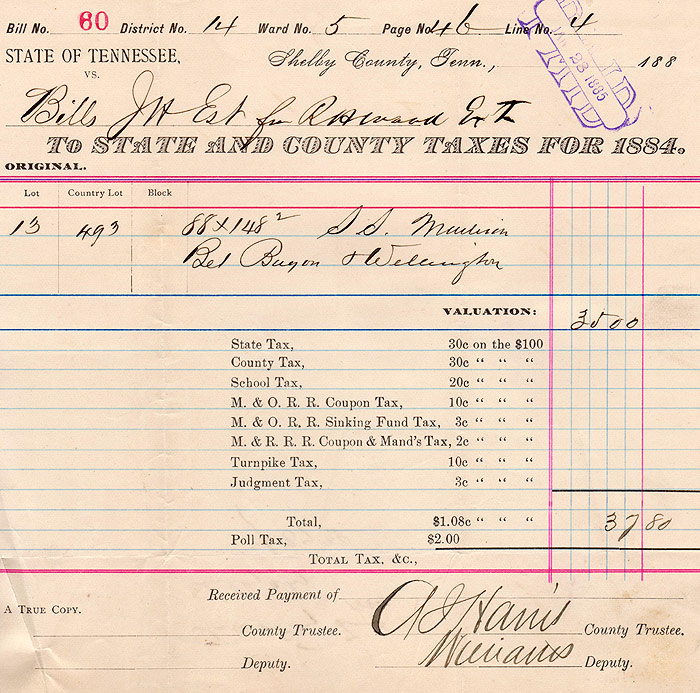 Bill No. 60 District No. 14 Ward No. 5 Page No. 46 Line No. 4
PAID
23 1885
STATE OF TENNESSEE,
VS.
Shelby County, Tenn., 188
Bills J H Est for
TO STATE AND COUNTY TAXES FOR 1884.
ORIGINAL.
Lot Country Lot Block
13 493 88 x 148² S S. Madison
Bet Bayou & Wellington
VALUATION: 3500
State Tax, 30c on the $100
County Tax, 30c “ “ “
School Tax, 20c “ “ “
M. & O. R. R. Coupon Tax, 10c “ “ “
M. & O. R. R. Sinking Fund Tax, 3c “ “ “
M. & R. R. R. Coupon & Mand's Tax, 2c “ “ “
Turnpike Tax, 10c “ “ “
Judgment Tax, 3c “ “ “
Total, $1.08c “ “ “ 37 80
Poll Tax, $2.00
TOTAL TAX, &C.,
Received Payment of
A TRUE COPY.
County Trustee. A J Harris County Trustee.
Deputy. Williams Deputy.